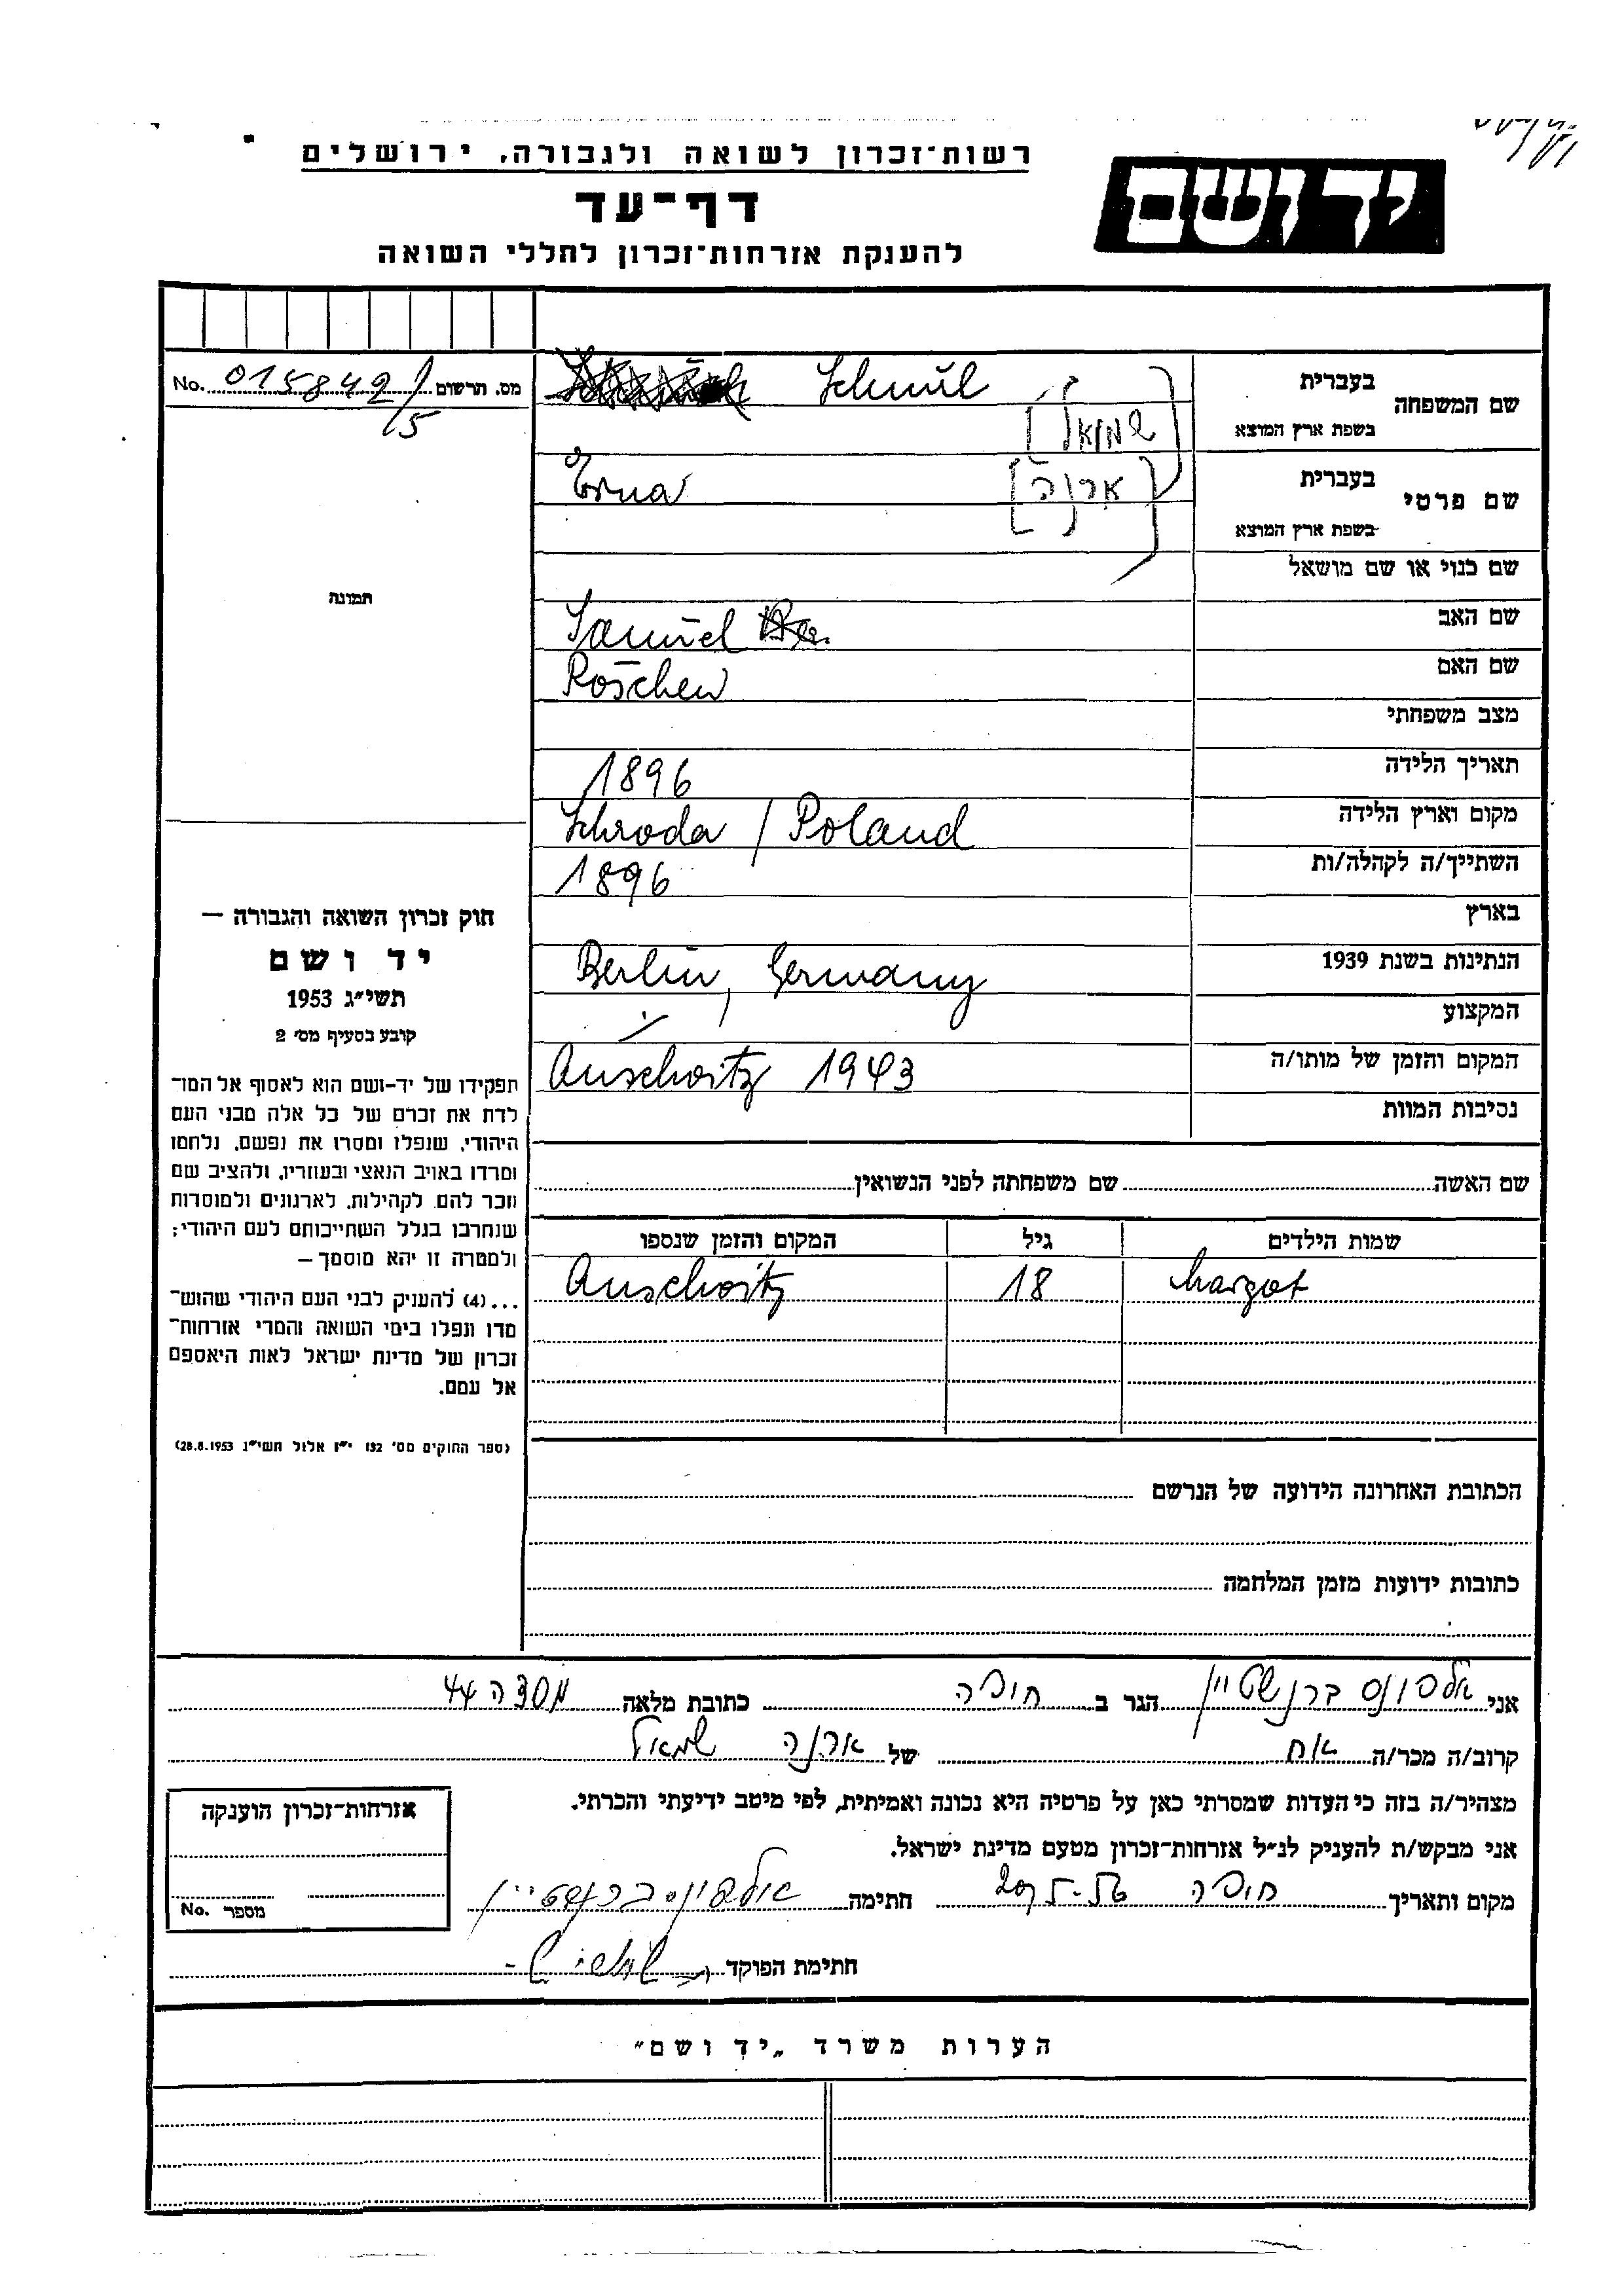 רשות־זכרון לשואה ולגבורה, ירושלים
יד ושם
דף־עד
להענקת אזרחות־זכרון לחללי השואה
No. 015842/5 מס. תרשום
שם המשפחה בעברית Schmül
בשפת ארץ המוצא [שמואל]
שם פרטי בעברית Erna [ארנה]
בשפת ארץ המוצא
שם כנוי או שם מושאל
שם האב Samuel
שם האם Röschen
מצב משפחתי
תאריך הלידה 1896
מקום וארץ הלידה Schroda / Poland
השתייך/ה לקהלה/ות 1896
בארץ
הנתינות בשנת 1939 Berlin, Germany
המקצוע
המקום והזמן של מותו/ה Auschwitz 1943
נסיבות המוות
שם האשה שם משפחתה לפני הנשואין
שמות הילדים גיל המקום והזמן שנספו
Margot 18 Auschwitz
הכתובת האחרונה הידועה של הנרשם
כתובות ידועות מזמן המלחמה
תמונה
חוק זכרון השואה והגבורה —
יד ושם
תשי״ג 1953
קובע בסעיף מס׳ 2
תפקידו של יד-ושם הוא לאסוף אל המו־
לדת את זכרם של כל אלה מבני העם
היהודי, שנפלו ומסרו את נפשם, נלחמו
ומרדו באויב הנאצי ובעוזריו, ולהציב שם
וזכר להם, לקהילות, לארגונים ולמוסדות
שנחרבו בגלל השתייכותם לעם היהודי;
ולמטרה זו יהא מוסמך —
...(4) להעניק לבני העם היהודי שהוש־
מדו ונפלו בימי השואה והמרי אזרחות־
זכרון של מדינת ישראל לאות היאספם
אל עמם.
(ספר החוקים מס׳ 132 י״ז אלול תשי״ג 28.8.1953)
אני אלפונס ברנשטיין הגר ב חיפה כתובת מלאה מסדה 44
קרוב/ה מכר/ה אח של ארנה שמואל
מצהיר/ה בזה כי העדות שמסרתי כאן על פרטיה היא נכונה ואמיתית, לפי מיטב ידיעתי והכרתי.
אני מבקש/ת להעניק לנ״ל אזרחות־זכרון מטעם מדינת ישראל.
מקום ותאריך חיפה חתימה אלפונס ברנשטיין
חתימת הפוקד
אזרחות־זכרון הוענקה
מספר No.
הערות משרד „יד ושם״